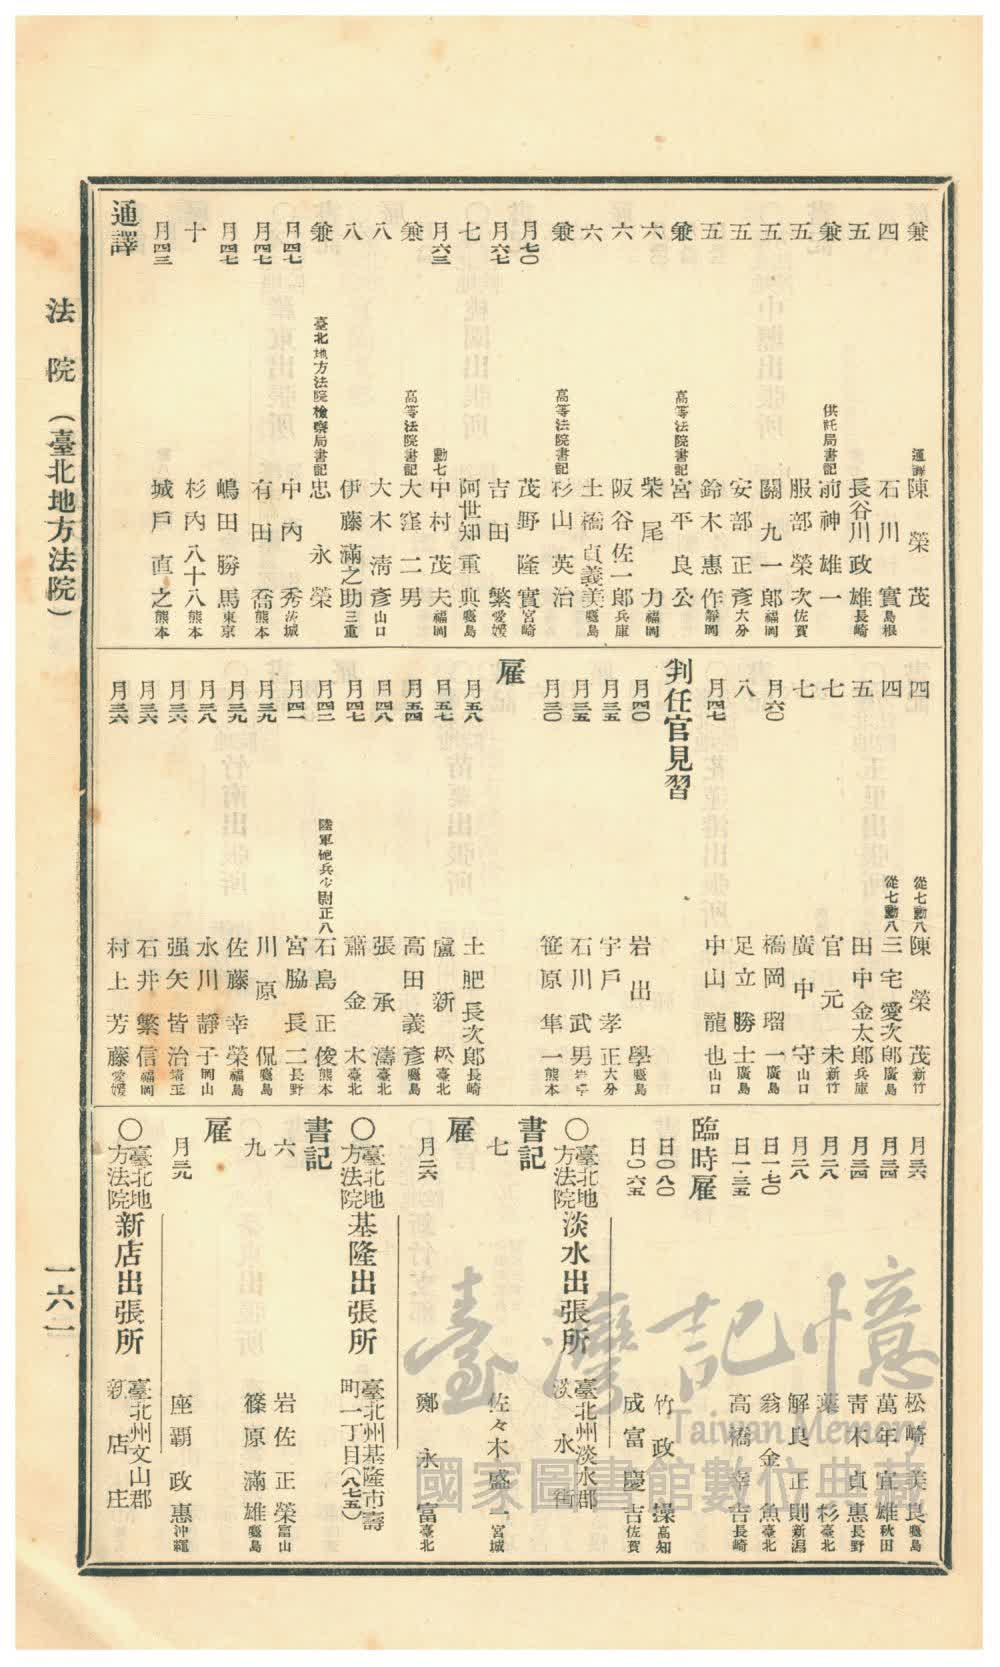 法院（臺北地方法院）
一六一
兼 通譯 陳榮茂
四 石川實 島根
五 長谷川政雄 長崎
兼 供託局書記 前神雄一
五 服部榮次 佐賀
五 關九一郎 福岡
五 安部正彥 大分
五 鈴木惠作 靜岡
兼 高等法院書記 宮平良公
六 柴尾力 福岡
六 阪谷佐一郎 兵庫
六 土橋貞義美 鹿兒島
兼 高等法院書記 杉山英治
月七〇 茂野隆實 宮崎
月六七 吉田繁 愛媛
七 阿世知重典 鹿兒島
月六三 勳七 中村茂夫 福岡
兼 高等法院書記 大窪二男
八 大木淸彥 山口
八 伊藤滿之助 三重
兼 臺北地方法院檢察局書記 忠永榮
月四七 中內秀 茨城
月四七 有田喬 熊本
月四七 嶋田勝馬 東京
十 杉內八十八 熊本
月四三 城戶直之 熊本
通譯
四 從七勳八 陳榮茂 新竹
四 從七勳八 三宅愛次郎 廣島
五 田中金太郎 兵庫
七 官元未 新竹
七 廣中守 山口
月六〇 橋岡瑠一 廣島
八 足立勝士 廣島
月四七 中山龍也 山口
判任官見習
月四〇 岩出學 鹿兒島
月三五 宇戶孝正 大分
月三五 石川武男
月三〇 笹原隼一 熊本
雇
月五八 土肥長次郎 長崎
月五七 盧新松 臺北
月五四 高田義彥 鹿兒島
月四八 張承濤 臺北
月四七 蕭金木 臺北
月四二 陸軍砲兵少尉正八 石島正俊 熊本
月四一 宮脇長二 長野
月三九 川原侃 鹿兒島
月三九 佐藤幸榮 福島
月三八 永川靜子 岡山
月三六 强矢皆治 埼玉
月三六 石井繁信 福岡
月三六 村上芳藤 愛媛
月三六 松崎美良 鹿兒島
月三四 萬年宜雄 秋田
月三四 靑木貞惠 長野
月二八 葉杉 臺北
月二八 解良正則 新潟
日一・七〇 翁金魚 臺北
日一・三五 高橋幸吉 長崎
臨時雇
日〇八〇 竹政操 高知
日〇六五 成富慶吉 佐賀
〇臺北地方法院淡水出張所 臺北州淡水郡淡水街
書記
七 佐々木盛一 宮城
雇
月二六 鄭永富 臺北
〇臺北地方法院基隆出張所 臺北州基隆市壽町一丁目（八七五）
書記
六 岩佐正榮 富山
九 篠原滿雄 鹿兒島
雇
月三九 座覇政惠 沖繩
〇臺北地方法院新店出張所 臺北州文山郡新店庄
臺灣記憶
Taiwan Memory
國家圖書館數位典藏